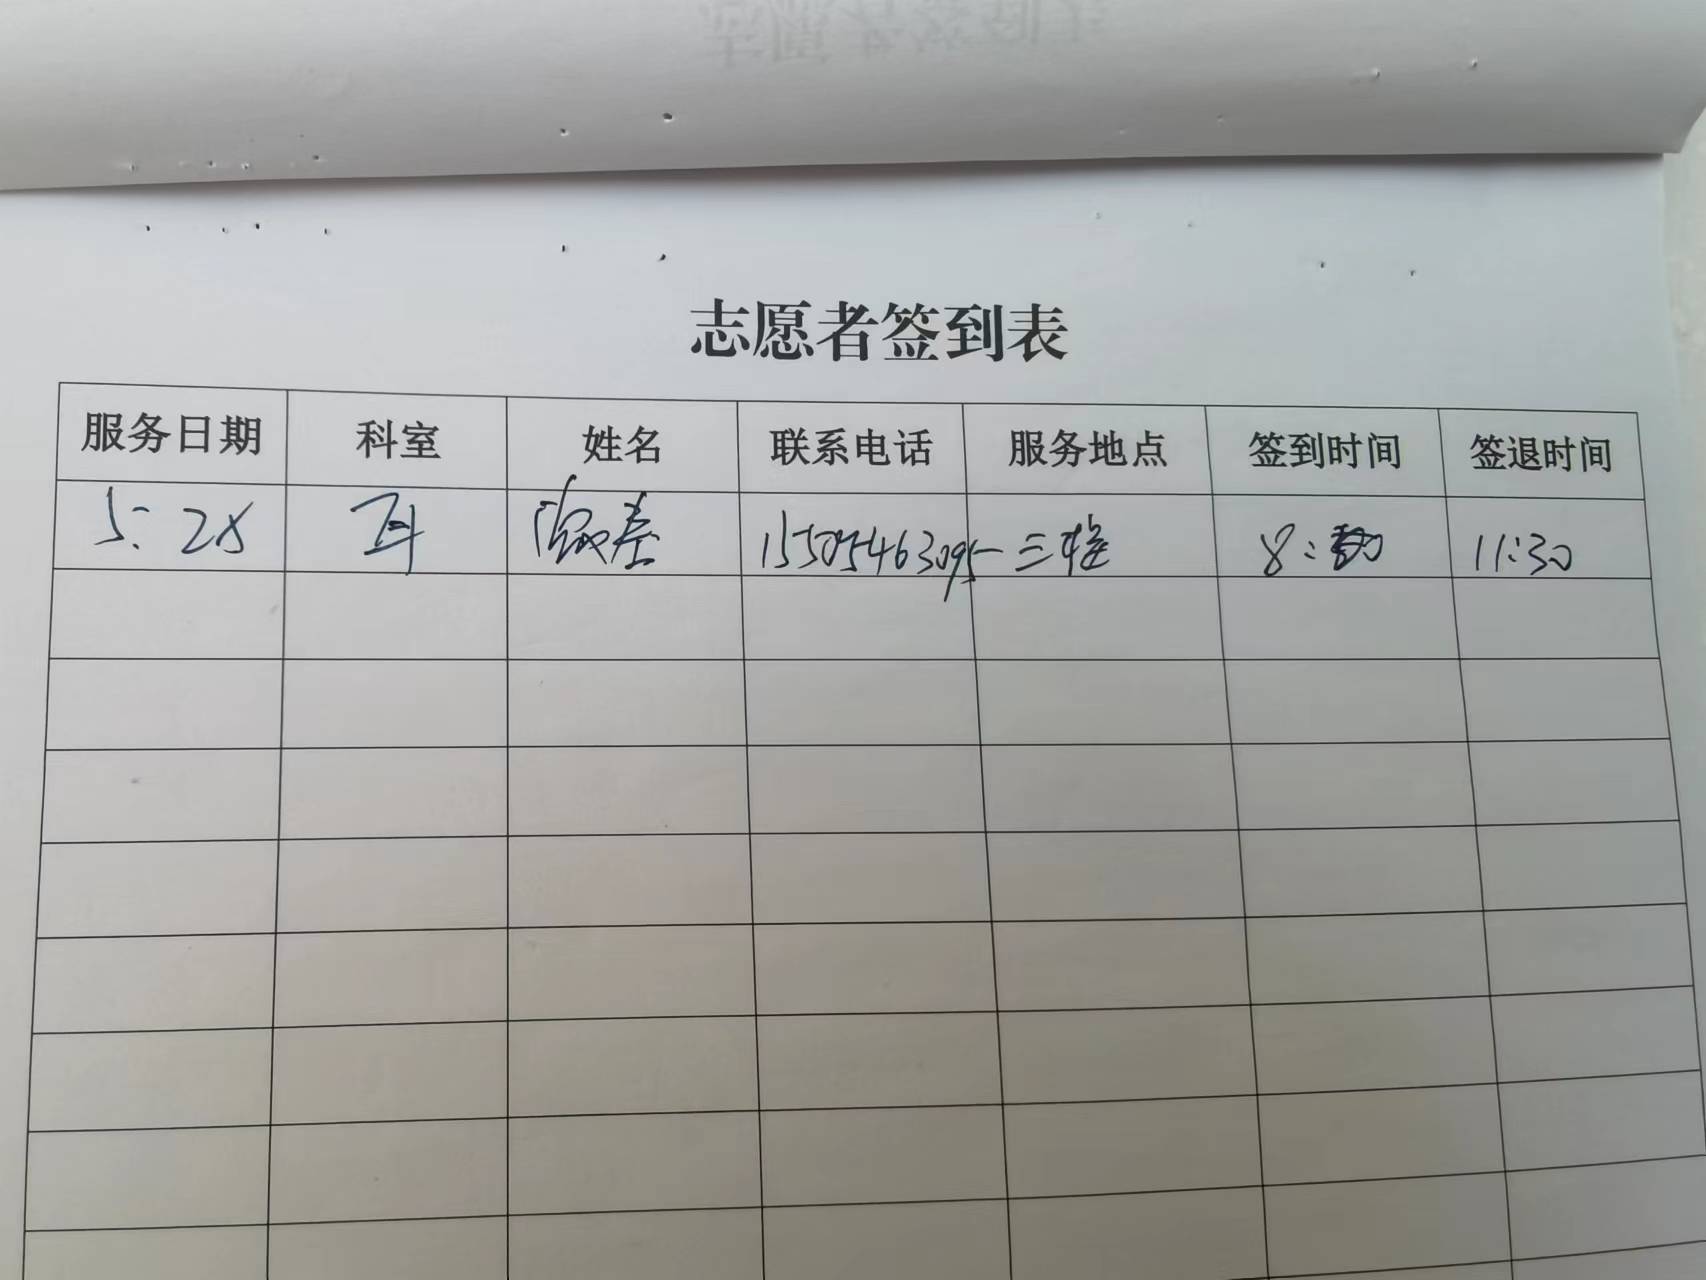 志愿者签到表
服务日期 科室 姓名 联系电话 服务地点 签到时间 签退时间
5:28 耳 15505463095 三楼 8: 11:30